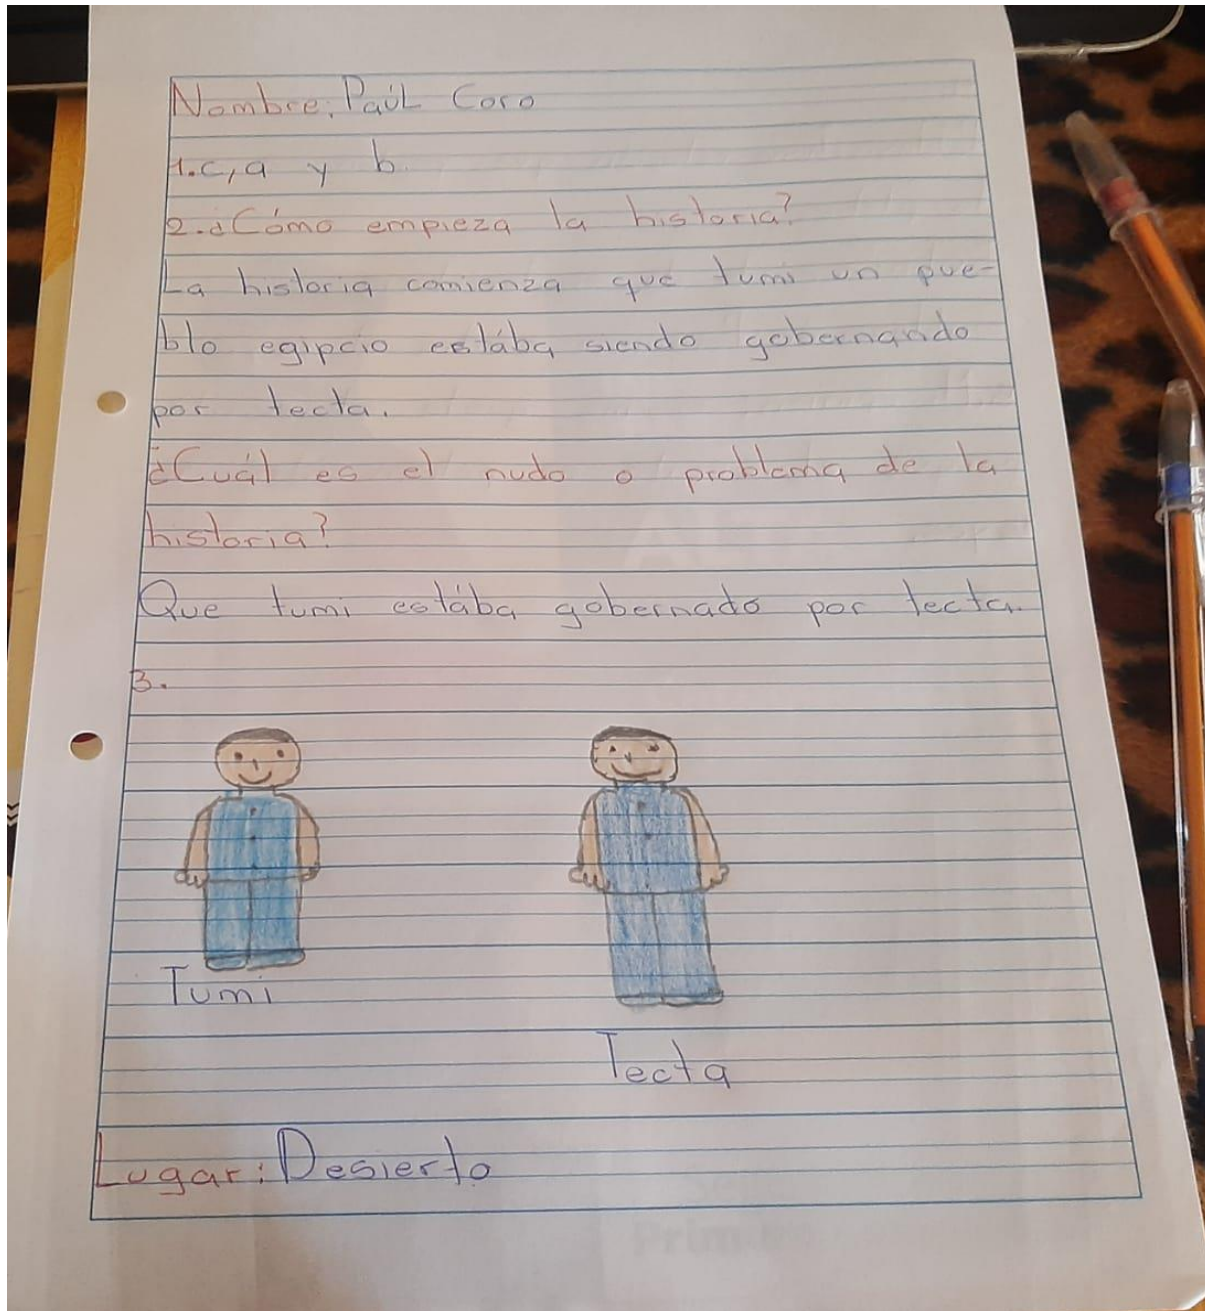 Nombre: Paúl Coro
1.c, a y b.
2.¿Cómo empieza la historia?
La historia comienza que tumi un pue-
blo egipcio estába siendo gobernando
por tecta.
¿Cuál es el nudo o problema de la
historia?
Que tumi estába gobernado por tecta.
3.
Tumi
Tecta
Lugar: Desierto